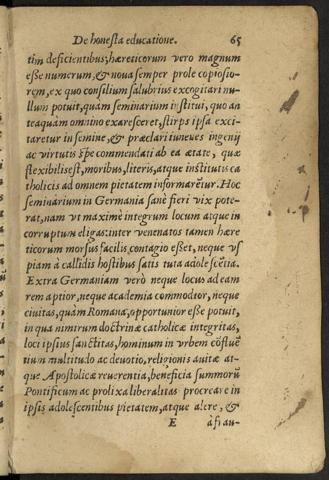 De honesta educatione. 65
tim deficientibus; hæreticorum vero magnum
esse numerum, & noua semper prole copiosio-
rem, ex quo consilium salubrius excogitari nu-
llum potuit, quam seminarium institui, quo an
teaquam omnino exaresceret, stirps ipsa exci-
taretur in semine, & præclari iuuenes ingenij
ac virtutis spe commendati ab ea ætate, quæ
flexibilis est, moribus, literis, atque institutis ca
tholicis ad omnem pietatem informarẽtur. Hoc
seminarium in Germania sanè fieri vix pote-
rat, nam vt maximè integrum locum atque in
corruptum eligas: inter venenatos tamen hære
ticorum morsus facilis contagio esset, neque vs
piam à callidis hostibus satis tuta adolescẽtia.
Extra Germaniam verò neque locus ad eam
rem aptior, neque academia commodior, neque
ciuitas, quàm Romana, opportunior esse potuit,
in qua nimirum doctrinæ catholicæ integritas,
loci ipsius sanctitas, hominum in vrbem cõflue
tium multitudo ac deuotio, religionis auitæ at-
que Apostolicæ reuerentia, beneficia summorũ
Pontificum ac prolixa liberalitas procreare in
ipsis adolescentibus pietatem, atque alere, &
E à frau-